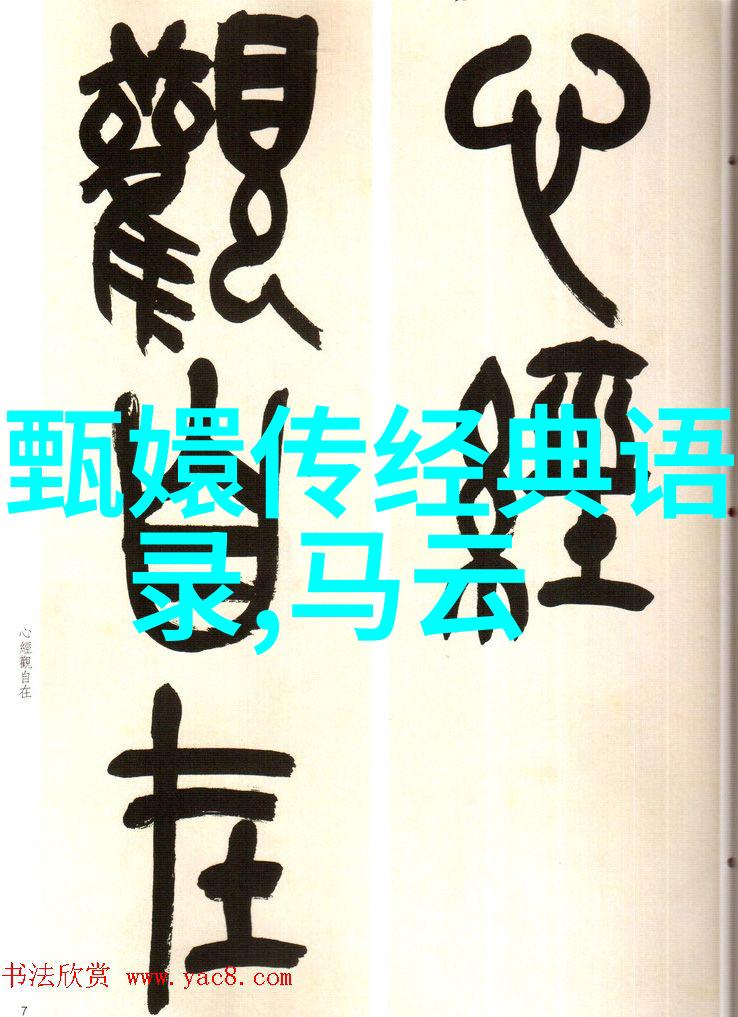 心經
觀自在
甄嬛传经典语
录,马云
心經觀自在
书法欣赏 www.yac8.com
7